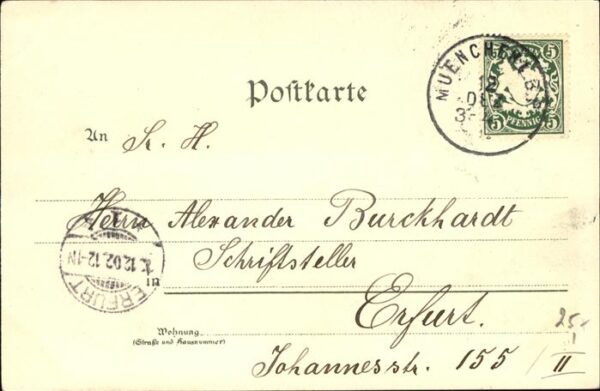 Postkarte
5 5
MUENCHEN
2
DEZ
3-
5 PFENNIG 5
An S. H.
Herrn Alexander Burckhardt
Schriftsteller
in
Erfurt.
ERFURT
12.02.12-1N
1
Wohnung
(Straße und Hausnummer)
Johannesstr. 155 / II
25,-